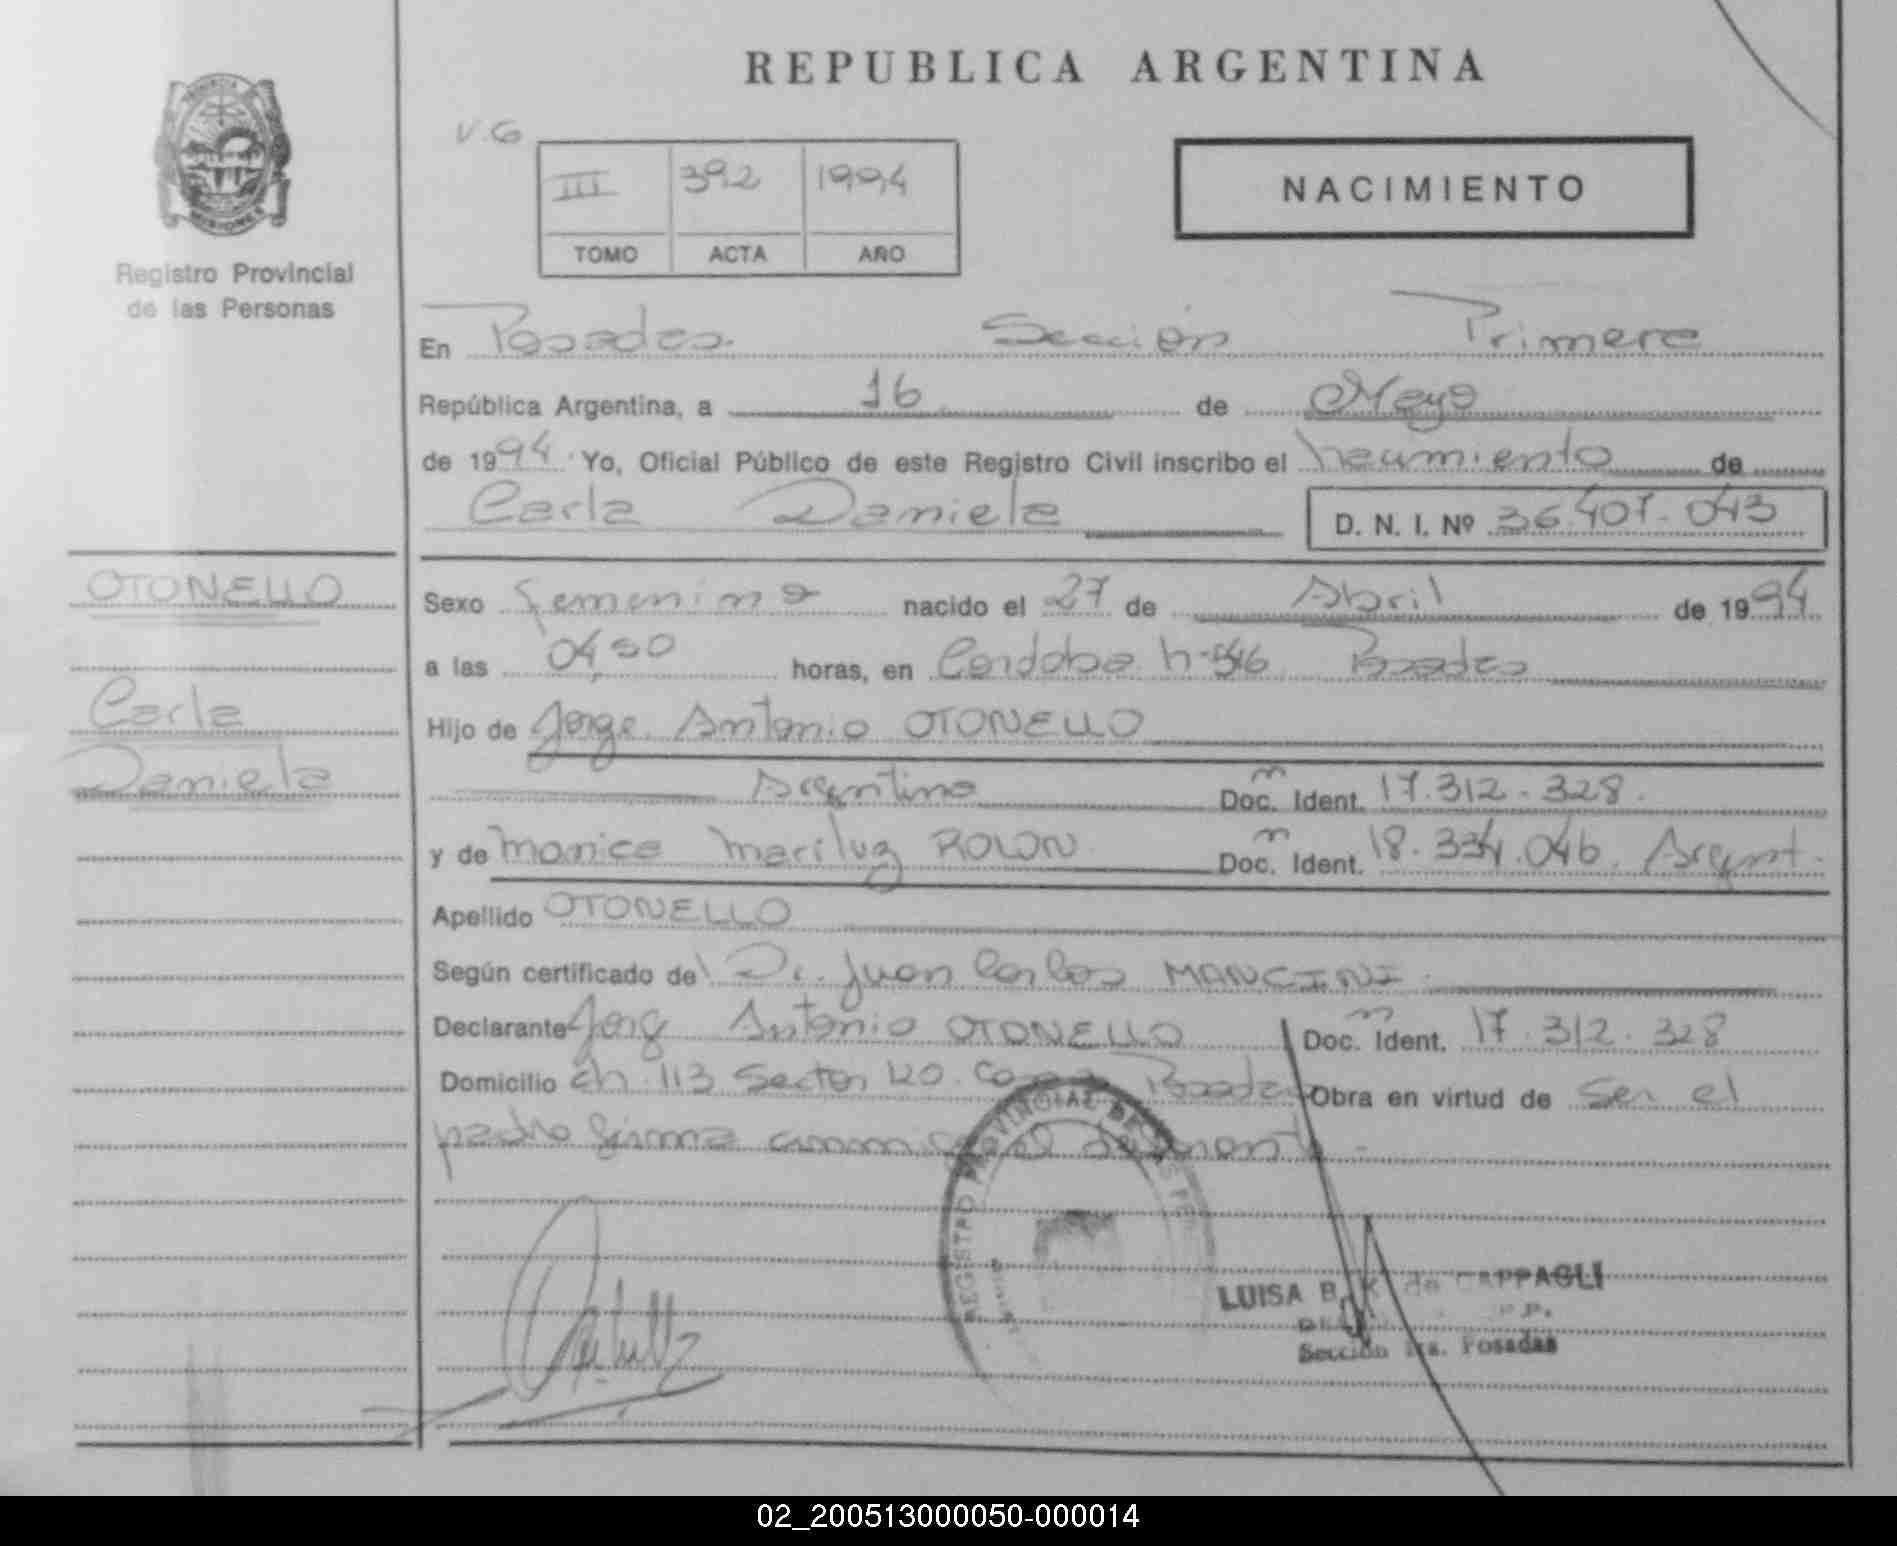 REPUBLICA ARGENTINA
V.G
III 392 1994
TOMO ACTA AÑO
NACIMIENTO
MISIONES
Registro Provincial
de las Personas
En Posadas. Sección Primera
República Argentina, a 16 de Mayo
de 1994 Yo, Oficial Público de este Registro Civil inscribo el nacimiento de
Carla Daniela D. N. I. Nº 36.407.043
OTONELLO
Carla
Daniela
Sexo femenino nacido el 27 de Abril de 1994
a las horas, en Cordoba n-546 Posadas
Hijo de Jorge Antonio OTONELLO
Argentino Doc. Ident. 17.312.328.
y de Monica Mariluz ROLON Doc. Ident. 18.334.046. Argent.
Apellido OTONELLO
Según certificado del Dr. Juan Carlos MANCINI
Declarante Jorg Antonio OTONELLO Doc. Ident. 17.312.328
Domicilio ch. 113 Sector Posadas Obra en virtud de ser el
padre firma
REGISTRO PROVINCIAL DE LAS PER
LUISA B. K de CAPPAGLI
Sección 1ra. Posadas
02_200513000050-000014